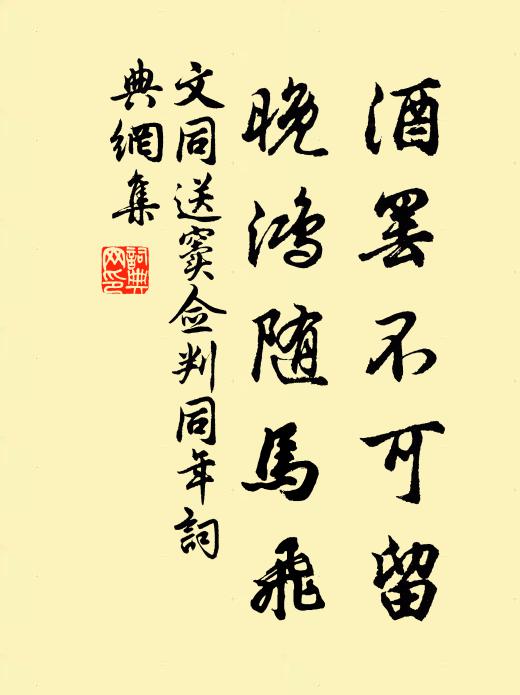 酒罢不可留
晚鸿随馬飛
文同送窦佥判同年詞
典網集
詞典网印